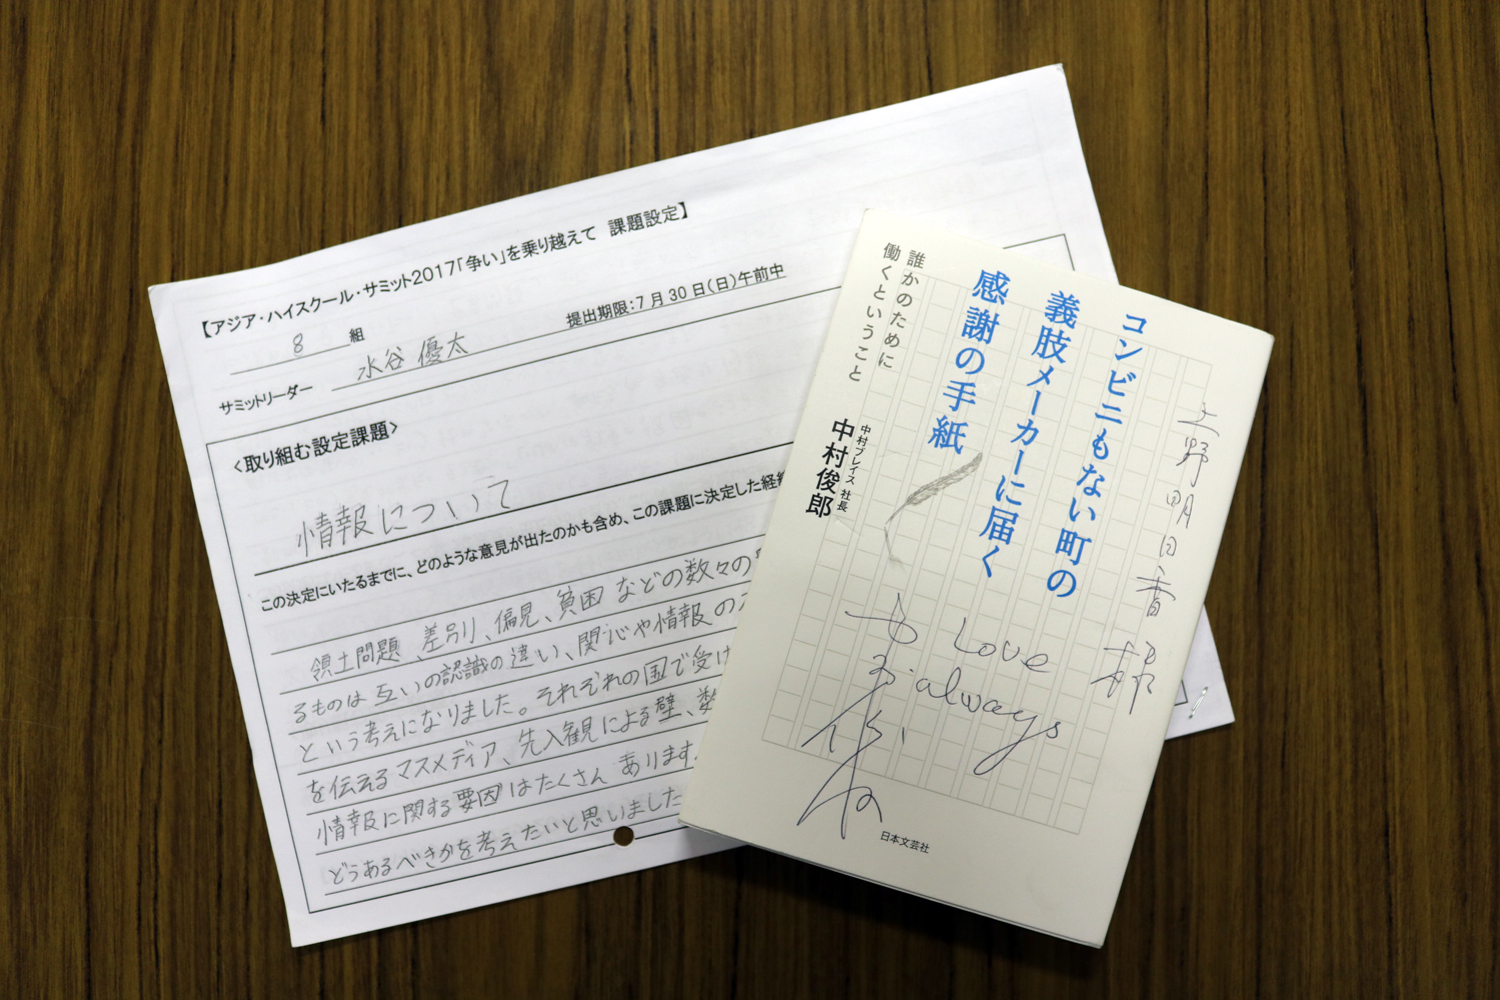 【アジア・ハイスクール・サミット2017「争い」を乗り越えて　課題設定】
8 組
提出期限：7月30日（日）午前中
サミットリーダー 水谷 優太
<取り組む設定課題>
情報について
この決定にいたるまでに、どのような意見が出たのかも含め、この課題に決定した経
領土問題、差別、偏見、貧困 などの数々の
るものは 互いの認識の違い、関心や情報の
という考えになりました。それぞれの国で受け
を伝える マスメディア、先入観による壁、
情報に関する要因はたくさん あります
どうあるべきかを考えたいと思いました
上野明日香 様
コンビニもない町の
義肢メーカーに届く
感謝の手紙
誰かのために
働くということ
中村ブレイス 社長
中村俊郎
Love
always
日本文芸社